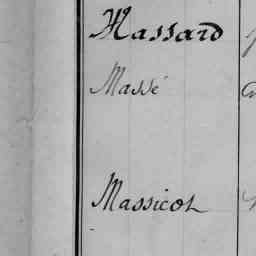 Massard
Massé
Massicot